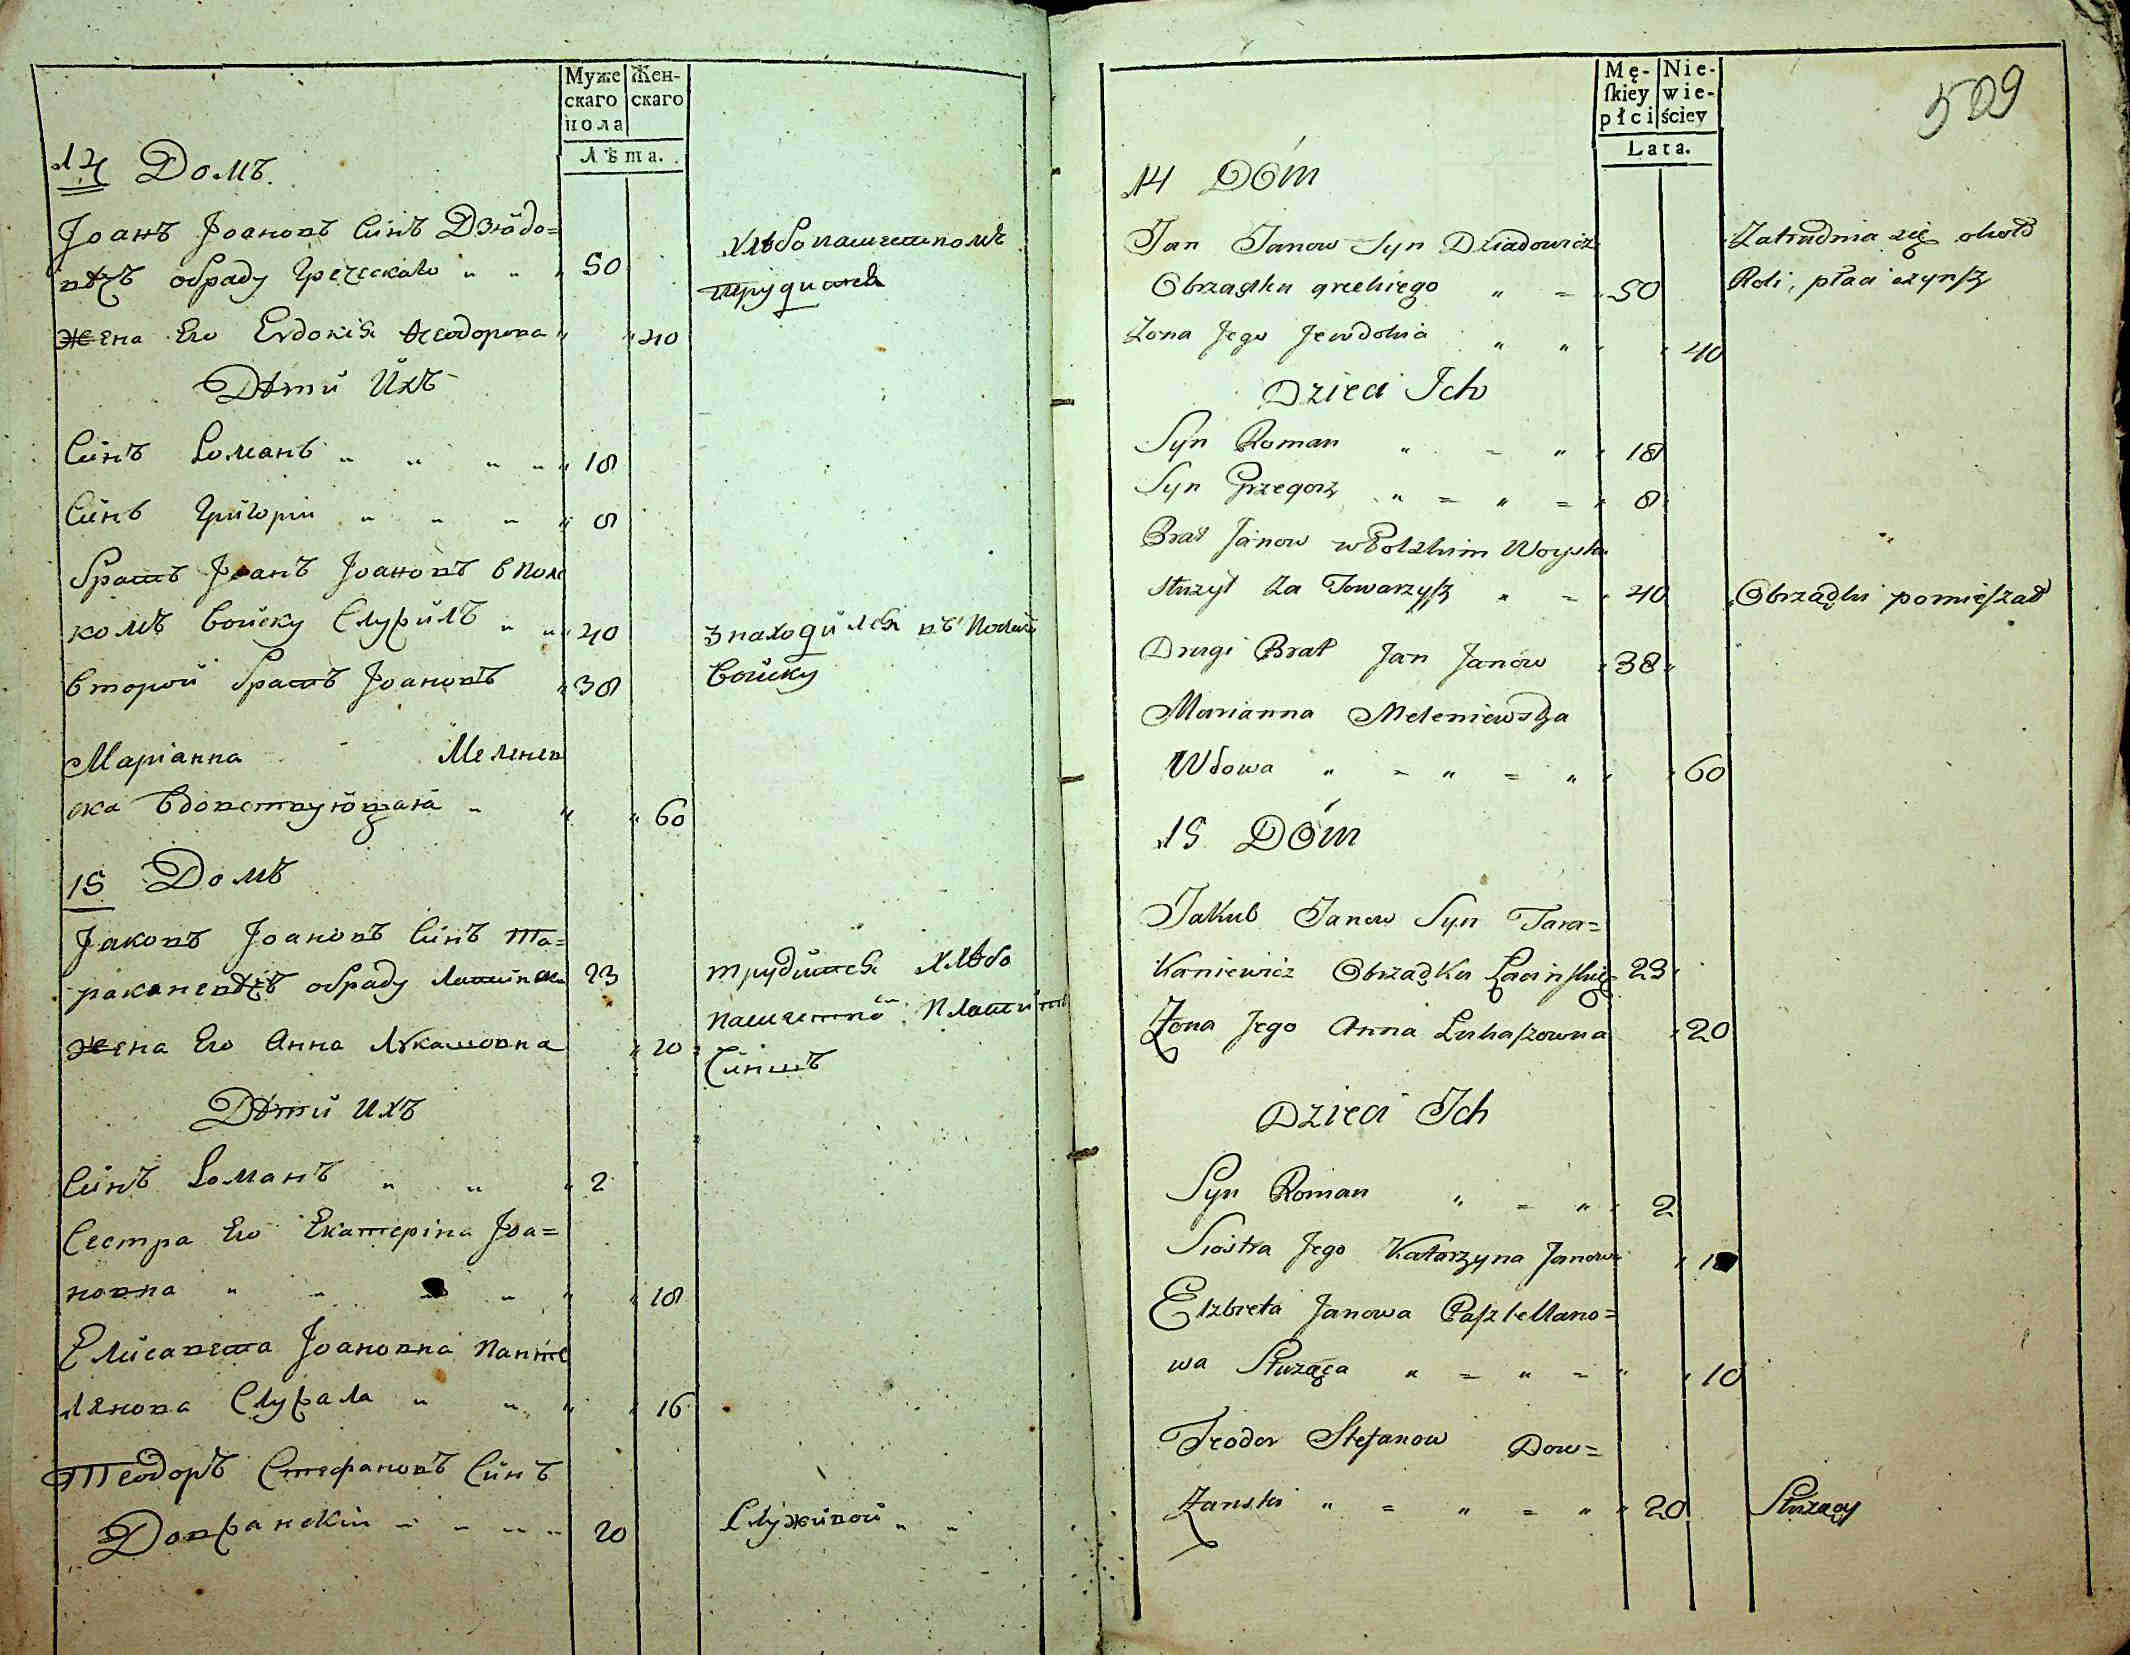 Муже Жен-
скаго скаго
пола
Лѣта.
14 Домъ
Іоанъ Іоановъ Синъ Дзядо=
вѣчъ обраду Греческаго 50 Хлѣбопашетвомъ
трудится
жена Его Евдокія Ѳеодорова 40
Дѣти Ихъ
Синъ Романъ 18
Синъ Григорій 8
Братъ Іоанъ Іоановъ в Полс
комъ Войску Служилъ 40 Знаходился въ Полско
Второй братъ Іоановъ 38 Войску
Маріанна Меленев
ска Вдовствующая 60
15 Домъ
Іаковъ Іоановъ Синъ Та=
ракановѣчъ обраду Латинска 23 трудится Хлѣбо
пашетво Платитъ
жена Его Анна Лукашовна 20 Синшъ
Дѣти Ихъ
Синъ Романъ 2
Сестра Его Екатеріна Іоа=
новна 18
Елисавета Іоановна Панте
лянова Служала 16
Теодоръ Стефановъ Синъ
Довжанскій 20 Служивой
Mę- Nie-
skiey wie-
płci ściey
Lata.
509
14 Dóm
Jan Janow Syn Dziadowicz Zatrudnia się około
Obrządku greckiego 50 Roli, płaci czynsz
Żona Jego Jewdokia 40
Dzieci Ich
Syn Roman 18
Syn Grzegorz 8
Brat Janow w Polskim Woysku
służył Za Towarzysz 40 Obrządki pomieszał
Drugi Brat Jan Janów 38
Marianna Meleniewska
Wdowa 60
15 Dóm
Jakub Janow Syn Tara=
kaniewicz Obrządku Łacinskieg 23
Żona Jego Anna Lukaszowna 20
Dzieci Ich
Syn Roman 2
Siostra Jego Katarzyna Janowa 18
Elzbieta Janowa Paszlellano=
wa Służąca 10
Teodor Stefanow Dow=
żanski 20 Służący